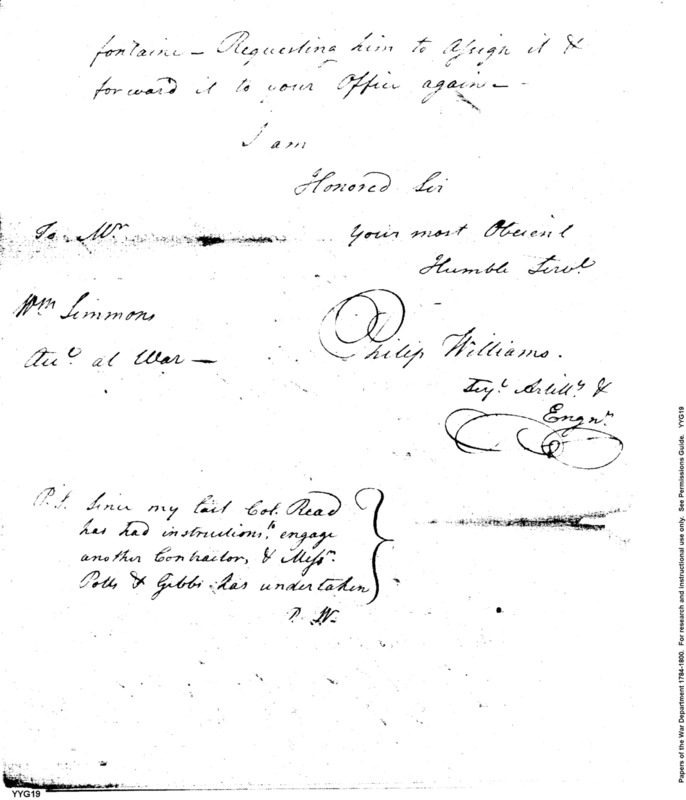 fontaine — Requesting him to Assign it &
forward it to your Office again —
I am
Honored Sir
To Mr.
Your most Obedient
Humble Servt.
Wm Simmons
Acct. at War —
Philip Williams.
Serjt. Artilly. &
Engnr.
P.S. Since my last Col. Read
has had instructions to engage
another Contractor, & Messrs.
Potts & Gibbs has undertaken
P. W.
YYG19
Papers of the War Department 1784-1800. For research and instructional use only. See Permissions Guide. YYG19